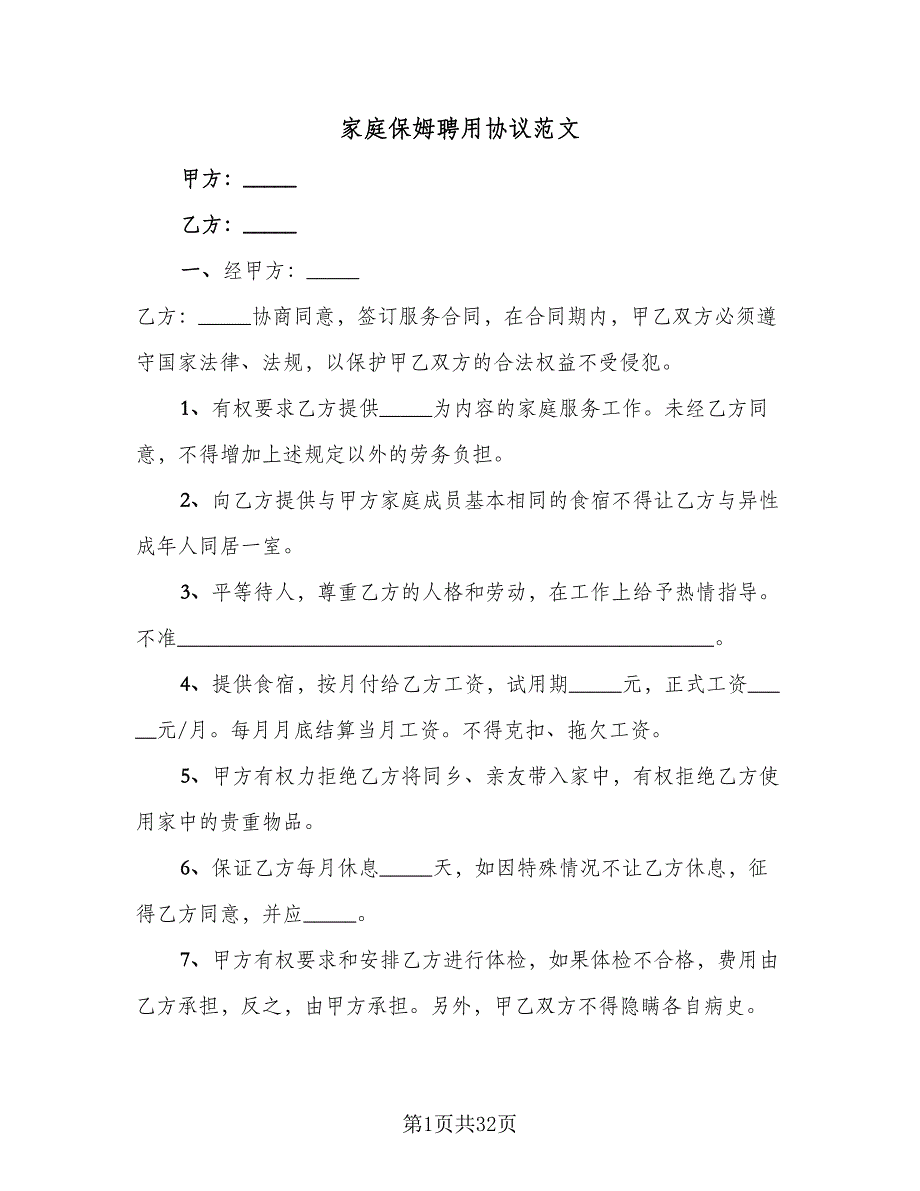 家庭保姆聘用协议范文
甲方：_____
乙方：_____
一、经甲方：_____
乙方：_____协商同意，签订服务合同，在合同期内，甲乙双方必须遵
守国家法律、法规，以保护甲乙双方的合法权益不受侵犯。
1、有权要求乙方提供_____为内容的家庭服务工作。未经乙方同
意，不得增加上述规定以外的劳务负担。
2、向乙方提供与甲方家庭成员基本相同的食宿不得让乙方与异性
成年人同居一室。
3、平等待人，尊重乙方的人格和劳动，在工作上给予热情指导。
不准___________________________________________________。
4、提供食宿，按月付给乙方工资，试用期_____元，正式工资___
__元/月。每月月底结算当月工资。不得克扣、拖欠工资。
5、甲方有权力拒绝乙方将同乡、亲友带入家中，有权拒绝乙方使
用家中的贵重物品。
6、保证乙方每月休息_____天，如因特殊情况不让乙方休息，征
得乙方同意，并应_____。
7、甲方有权要求和安排乙方进行体检，如果体检不合格，费用由
乙方承担，反之，由甲方承担。另外，甲乙双方不得隐瞒各自病史。
第1页共32页